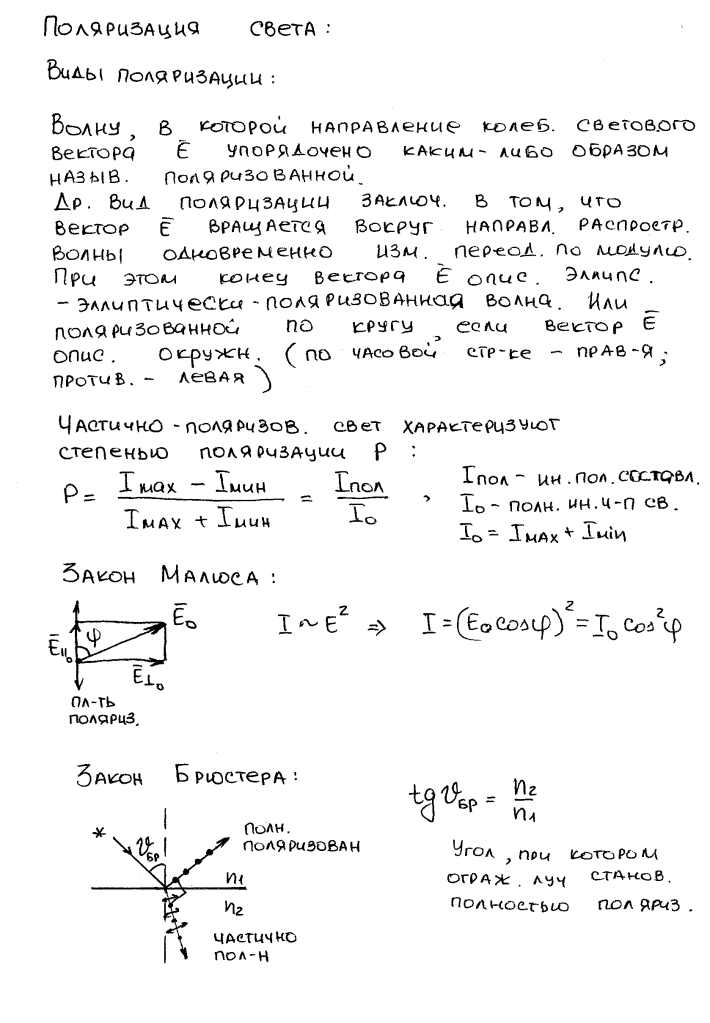 Поляризация света:
Виды поляризации:
Волну, в которой направление колеб. светового
вектора Ē упорядочено каким-либо образом
назыв. поляризованной.
Др. вид поляризации заключ. в том, что
вектор Ē вращается вокруг направл. распростр.
волны одновременно изм. период. по модулю.
При этом конец вектора Ē опис. эллипс.
- эллиптически-поляризованная волна. Или
поляризованной по кругу, если вектор Ē
опис. окружн. (по часовой стр-ке - прав-я;
против. - левая)
Частично-поляризов. свет характеризуют
степенью поляризации P:
P = (Iмах - Iмин)/(Iмах + Iмин) = Iпол/I₀ ,
Iпол - ин. пол. составл.
I₀ - полн. ин. ч-п св.
I₀ = Iмах + Imin
Закон Малюса:
Ē₀
φ
Ē||₀
Ē⊥₀
пл-ть
поляриз.
I ~ E² ⇒ I = (E₀cosφ)² = I₀ cos²φ
Закон Брюстера:
*
ϑбр
полн.
поляризован
n₁
n₂
частично
пол-н
tgϑбр = n₂/n₁
Угол, при котором
отраж. луч станов.
полностью поляриз.